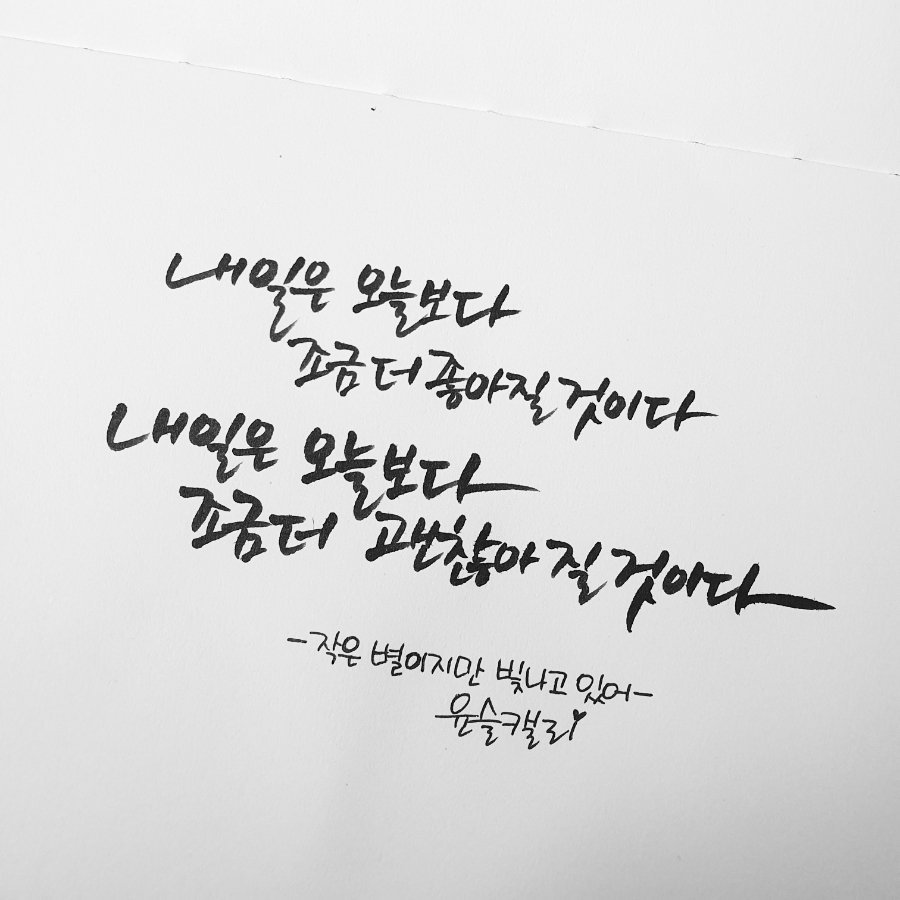 내일은 오늘보다
조금 더 좋아질 것이다
내일은 오늘보다
조금 더 괜찮아 질 것이다
-작은 별이지만 빛나고 있어-
윤슬캘리